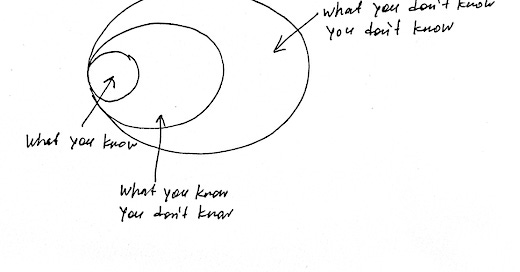 what you don't know
you don't know
What you know
What you know
you don't know